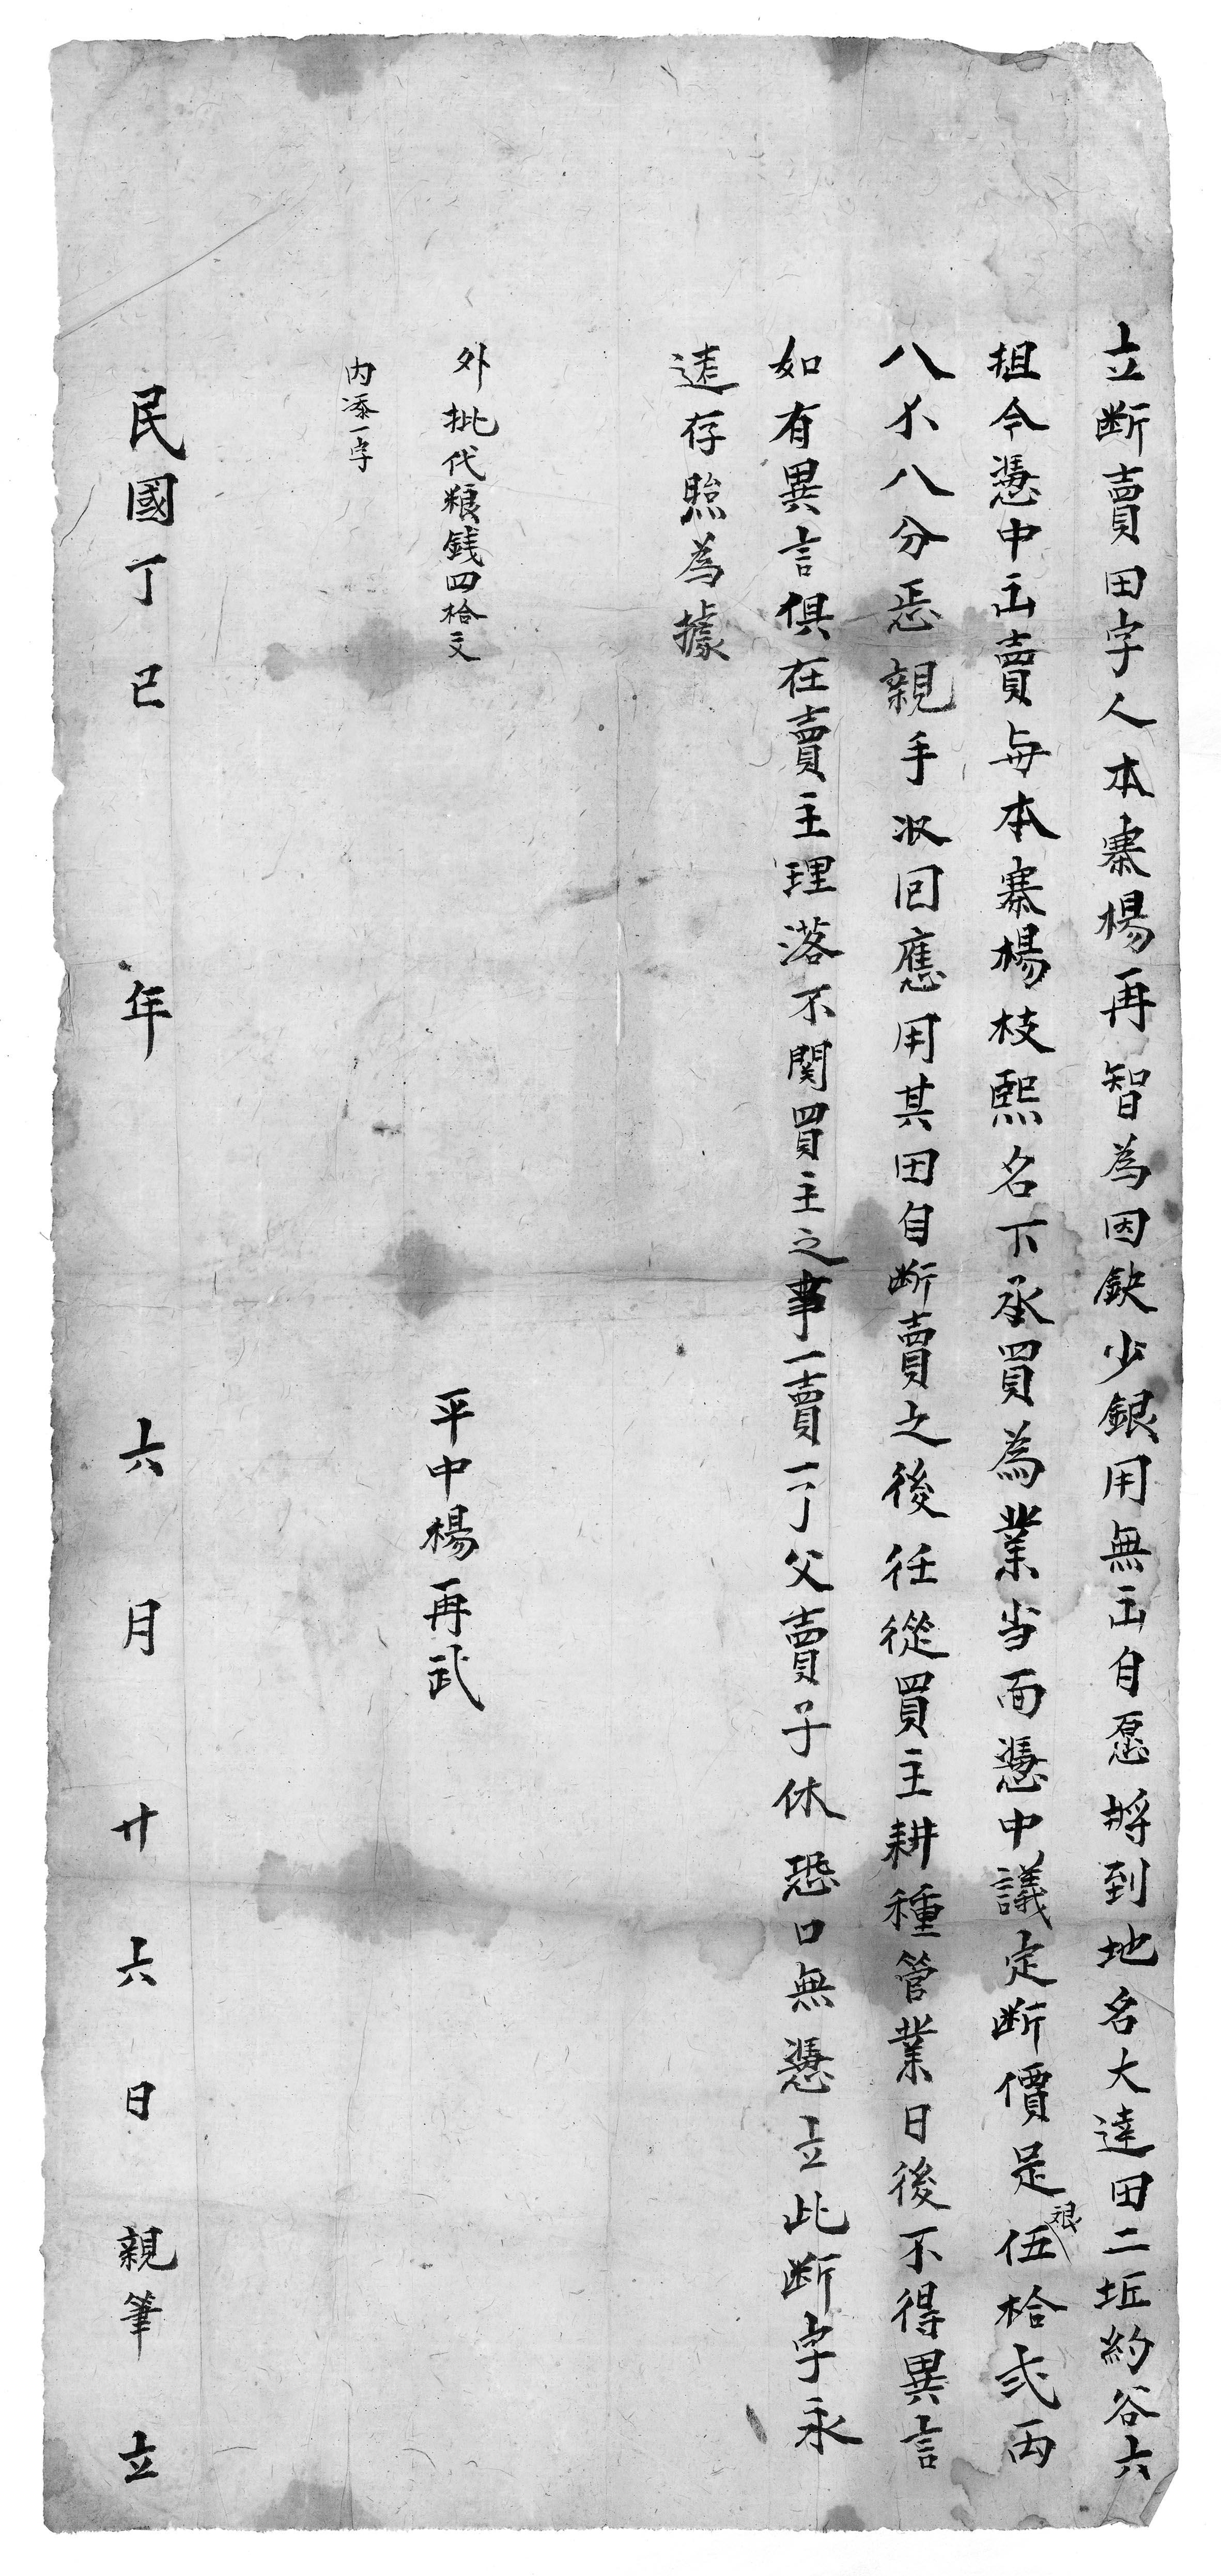 立断賣田字人本寨楊再智為因缺少銀用無出自愿將到地名大達田二坵約谷六
担今憑中出賣与本寨楊枝熙名下承買為業当面憑中議定断價足銀伍拾弍两
八小八分恁親手収回應用其田自断賣之後任從買主耕種管業日後不得異言
如有異言俱在賣主理落不関買主之事一賣一了父賣子休恐口無憑立此断字永
遠存照為據
外批代粮銭四拾文
內添一字
平中楊再武
民國丁巳年六月廿六日親筆立